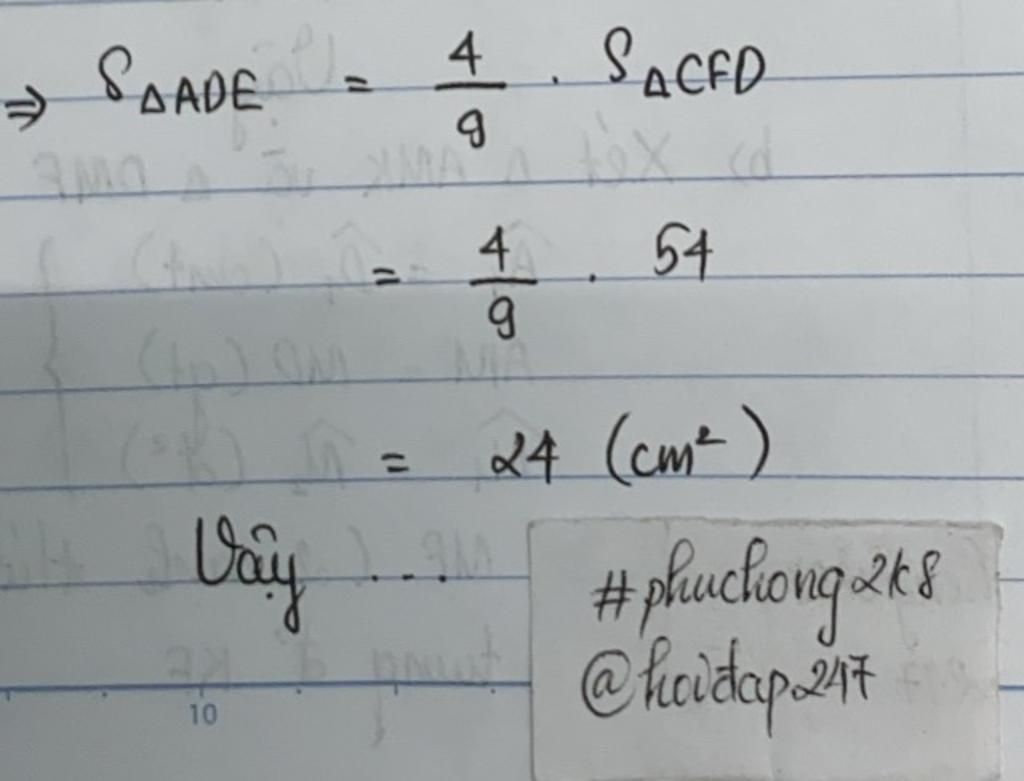 ⇒ S△ADE = 4/9 . S△CFD
= 4/9 . 54
= 24 (cm²)
Vậy ...
#phuchong2k8
@hoidap247
10